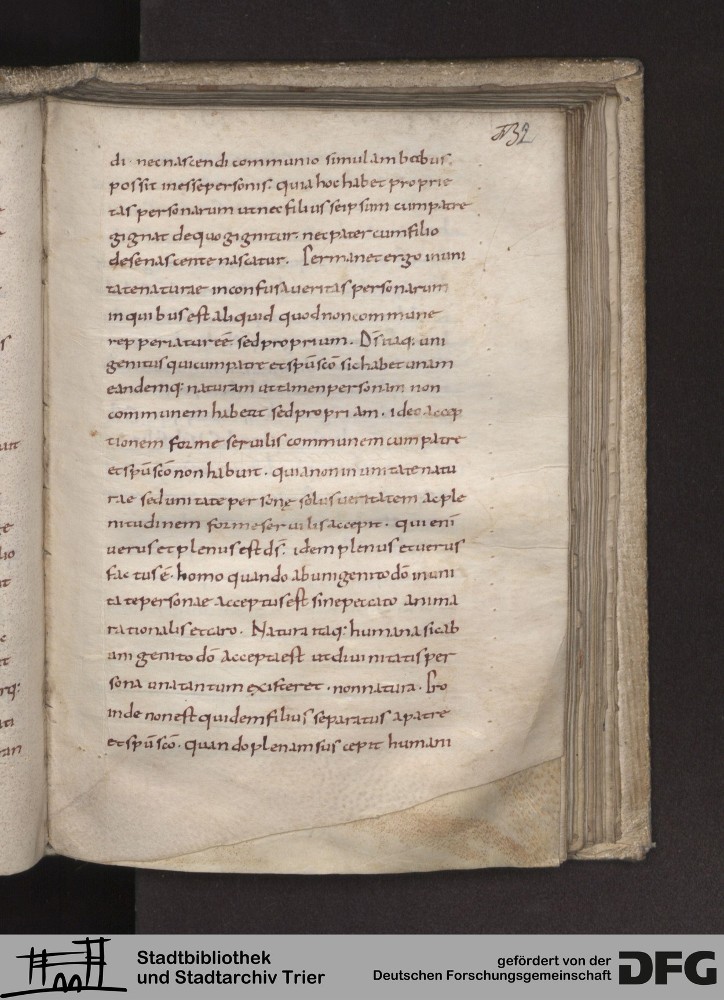 32
di · nec nascendi communio simul ambobus
possit inesse personis · quia hoc habet proprie
tas personarum ut nec filius seipsum cum patre
gignat de quo gignitur · nec pater cum filio
de se nascente nascatur · Permanet ergo in uni
tate naturae inconfusa ueritas personarum
in quibus est aliquid quod non commune
repperiatur eē sed proprium · Dſ̄ itaq; uni
genitus qui cum patre et sp̄u sc̄o sic habet unam
eandemq; naturam ut tamen personam non
communem habeat sed propriam · ideo accep
tionem forme seruilis communem cum patre
et sp̄u sc̄o non habuit · quia non in unitate natu
rae sed unitate personę solus ueritatem ac ple
nitudinem forme seruilis accepit · qui enī
uerus et plenus est dſ̄ · idem plenus et uerus
factus ē · homo quando ab unigenito dō in uni
tate personae acceptus est sine peccato anima
rationalis et caro · Natura itaq; humana sic ab
unigenito dō accepta est ut diuinitatis per
sona una tantum existeret · non natura · Pro
inde non est quidem filius separatus a patre
et sp̄u sc̄o · quando plenam suscepit humani
Stadtbibliothek
und Stadtarchiv Trier
gefördert von der
Deutschen Forschungsgemeinschaft
DFG